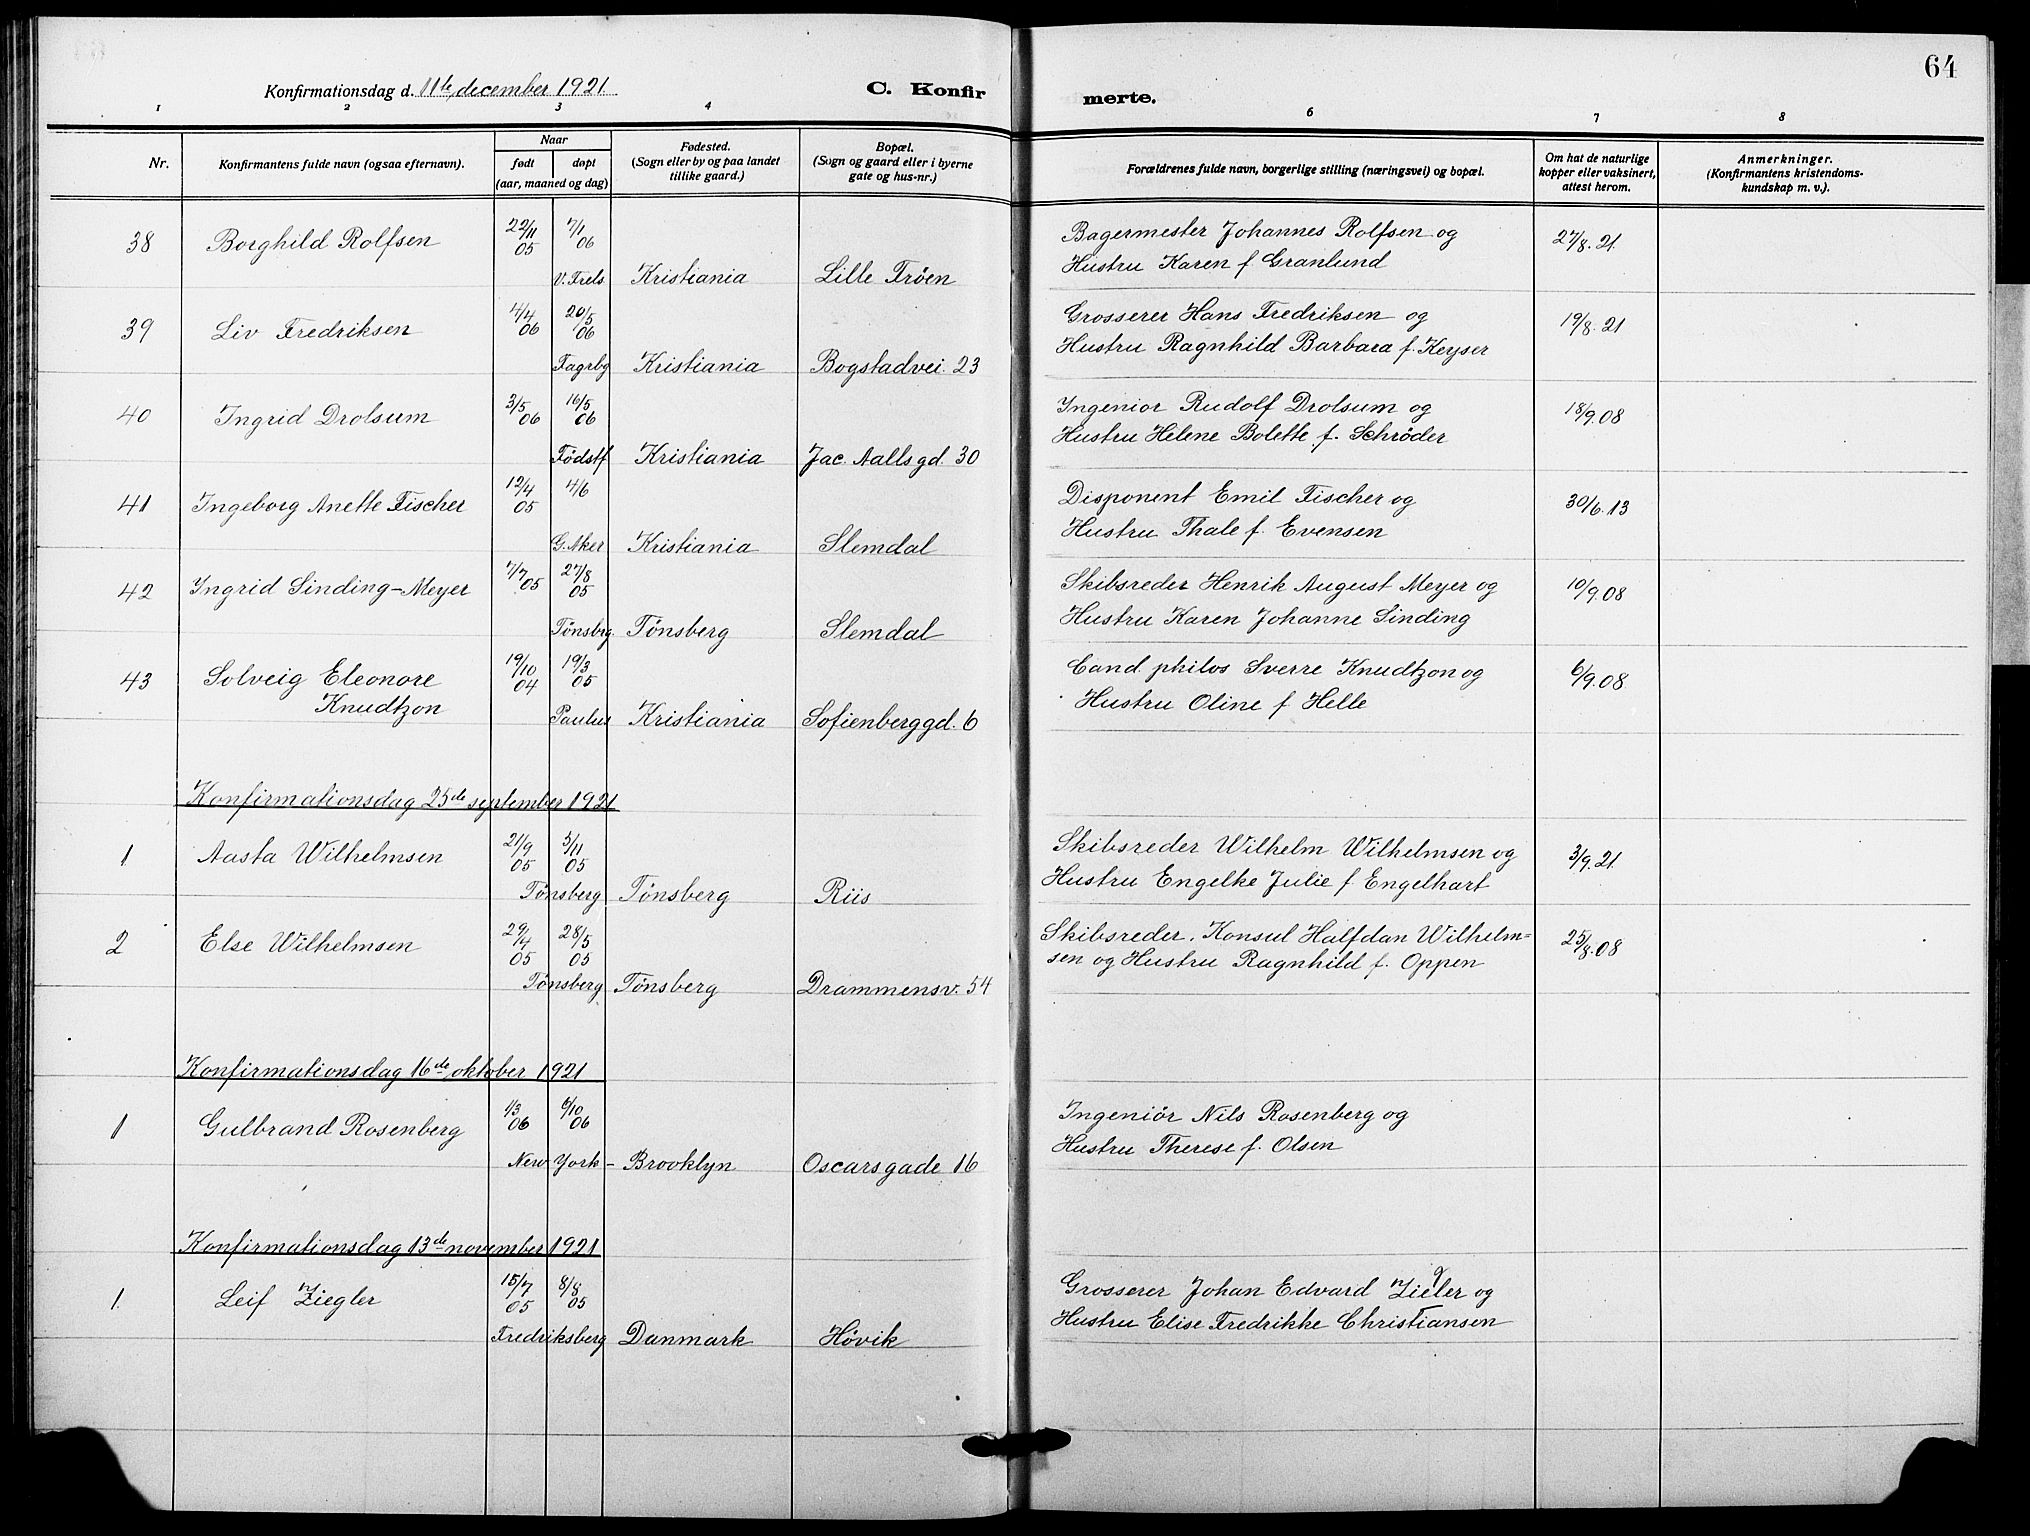 64
Konfirmationsdag d. 11te december 1921.
C. Konfirmerte.
1 2 3 4 6 7 8
Nr.
Konfirmantens fulde navn (ogsaa efternavn).
Naar
født døpt
(aar, maaned og dag)
Fødested.
(Sogn eller by og paa landet
tillike gaard.)
Bopæl.
(Sogn og gaard eller i byerne
gate og hus-nr.)
Forældrenes fulde navn, borgerlige stilling (næringsvei) og bopæl.
Om hat de naturlige
kopper eller vaksinert,
attest herom.
Anmerkninger.
(Konfirmantens kristendoms-
kundskap m. v.).
38 Borghild Rolfsen 22/11 05 7/1 06 Bagermester Johannes Rolfsen og 27/8. 21.
V. Frels. Kristiania Lille Frøen Hustru Karen f. Granlund
39 Liv Fredriksen 4/4 06 20/5 06 Grosserer Hans Fredriksen og 19/8. 21
Fagrbg Kristiania Bogstadvei. 23 Hustru Ragnhild Barbara f. Keyser
40 Ingrid Drolsum 3/5 06 16/5 06 Ingeniør Rudolf Drolsum og 18/9.08
Fødstf Kristiania Jac. Aalls gd. 30 Hustru Helene Bolette f. Schrøder
41 Ingeborg Anette Fischer 12/4 05 4/6 Disponent Emil Fischer og 30/6.13
G. Aker Kristiania Slemdal Hustru Thale f. Evensen
42 Yngrid Sinding-Meyer 7/7 05 27/8 05 Skibsreder Henrik August Meyer og 10/9.08
Tønsbrg. Tønsberg Slemdal Hustru Karen Johanne Sinding
43 Solveig Eleonore 19/10 04 19/3 05 Cand. philos Sverre Knudtzon og 6/9.08.
Knudtzon
Paulus Kristiania Sofienberggd. 6 Hustru Oline f. Helle
Konfirmationsdag 25de september 1921
1 Aasta Wilhelmsen 21/9 05 5/11 05 Skibsreder Wilhelm Wilhelmsen og 3/9.21.
Tønsberg Tønsberg Riis Hustru Engelke Julie f. Engelhart
2 Else Wilhelmsen 29/4 05 28/5 05 Skibsreder. Konsul Halfdan Wilhelm= 25/8.08
Tønsberg Tønsberg Drammensv. 54 sen og Hustru Ragnhild f. Oppen
Konfirmationsdag 16de oktober 1921
1 Gulbrand Rosenberg 1/3 06 6/10 06 Ingeniør Nils Rosenberg og
New York - Brooklyn Oscarsgade 16 Hustru Therese f. Olsen
Konfirmationsdag 13de november 1921
1. Leif Ziegler 15/7 05 8/8 05 Grosserer Johan Edvard Ziegler og
Fredriksberg Danmark Høvik Hustru Elise Fredrikke Christiansen